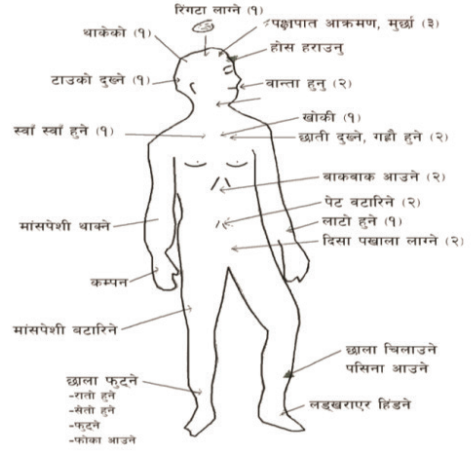 रिंगटा लाग्ने (१)
पक्षपात आक्रमण, मुर्छा (३)
थाकेको (१)
होस हराउनु
टाउको दुख्ने (१)
बान्ता हुनु (२)
खोकी (१)
स्वाँ स्वाँ हुने (१)
छाती दुख्ने, गह्रौ हुने (२)
बाकबाक आउने (२)
पेट बटारिने (२)
मांसपेशी थाक्ने
लाटो हुने (१)
दिसा पखाला लाग्ने (२)
कम्पन
मांसपेशी बटारिने
छाला चिलाउने
पसिना आउने
छाला फुट्ने
-रातो हुने
-सेतो हुने
-फुट्ने
-फोका आउने
लड्खराएर हिंडने